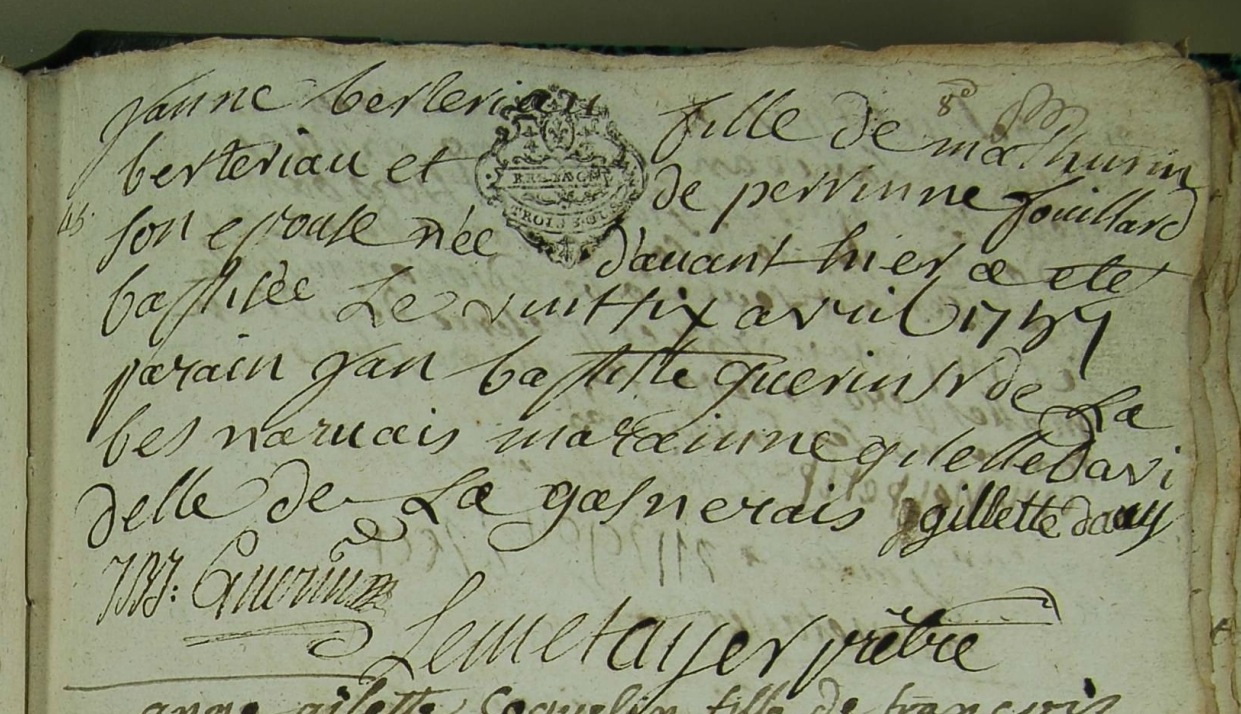 8e
janne berteriau fille de mathurin
berteriau et de perrinne fouillard
son epouse née d'auant hier a ete
baptisée Le vintsix avril 1757
parain jan baptiste guerin sr de La
bes naruais maraiinne gilelle davi
delle de La gasnerais gillette dauy
JB: Guerin
Lemetayer prêtre
ange gilette Coquelin fille de francois
BRETAGNE
TROIS SOLS